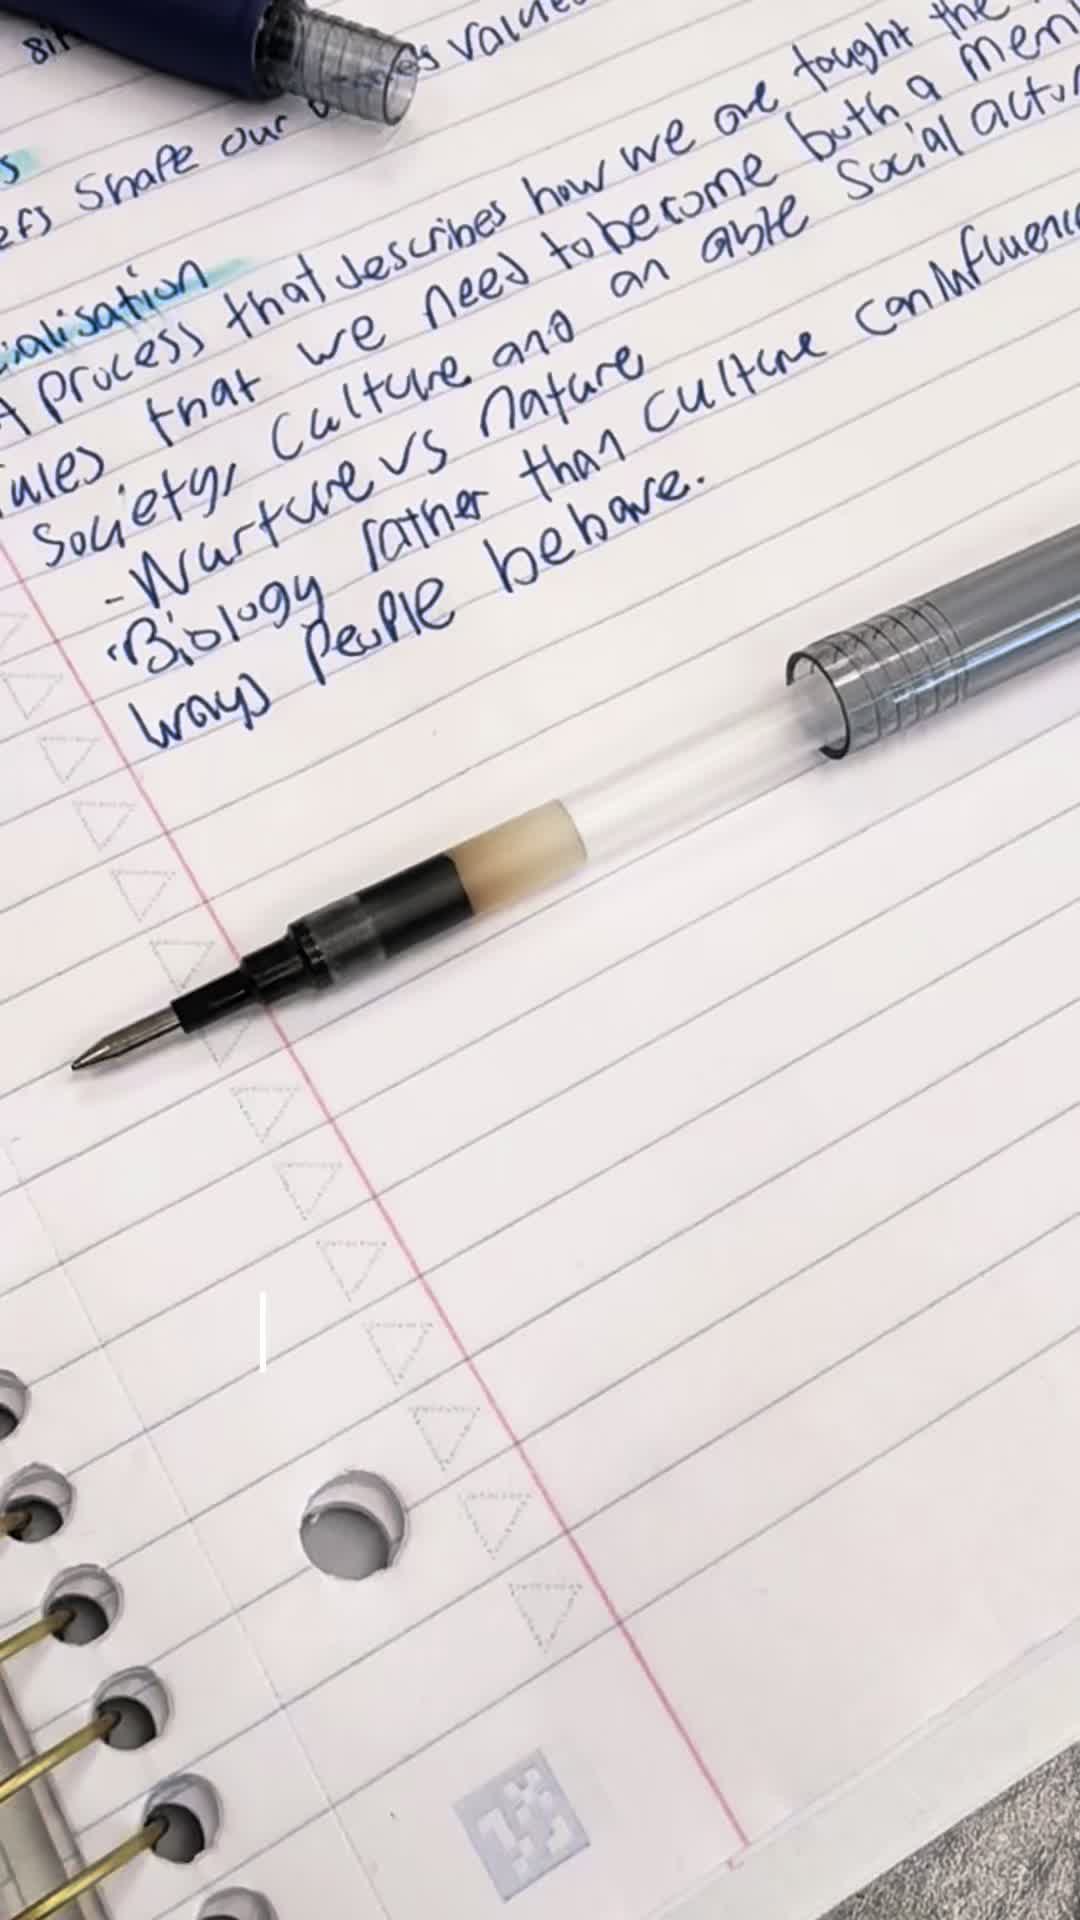 values
efs shape our
ialisation
A process that describes how we are tought the
rules that we need to become both a mem
society, culture and an able social actor
- Nurture vs nature
• Biology rather than culture can influenc
ways people behave.